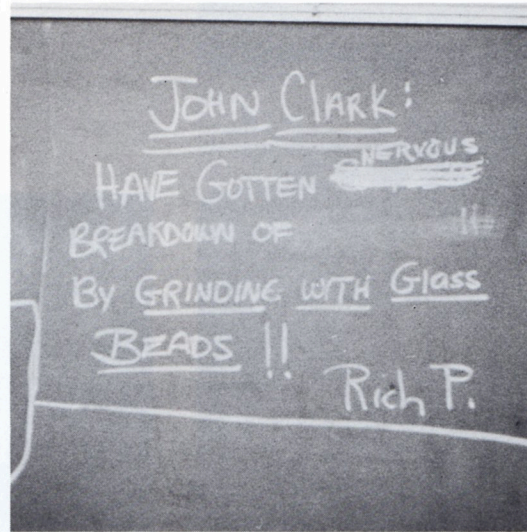 JOHN CLARK:
HAVE GOTTEN NERVOUS
BREAKDOWN OF
By GRINDING WITH Glass
BEADS !!
Rich P.